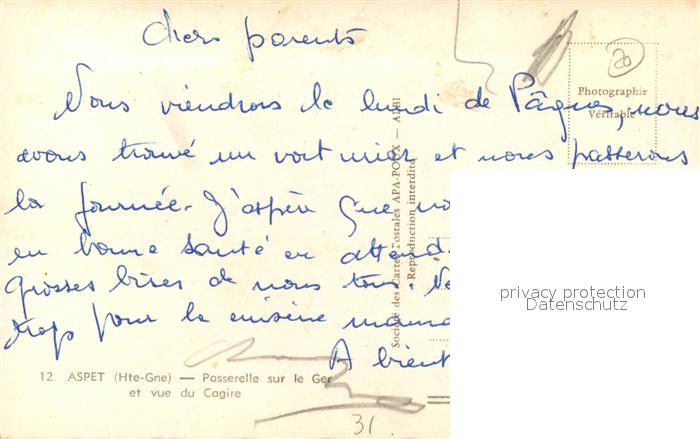 Chers parents
Nous viendrons le lundi de Pâques, nous
avons trouvé un voiturier et nous passerons
la journée. J'espère que
en bonne santé en attend
grosses bises de nous tous.
trop pour la cuisine mama
A bient
20
Photographie
Véritable
Société des Cartes Postales APA-POUX — ALBI
Reproduction interdite
privacy protection
Datenschutz
12 ASPET (Hte-Gne) — Passerelle sur le Ger
et vue du Cagire
31